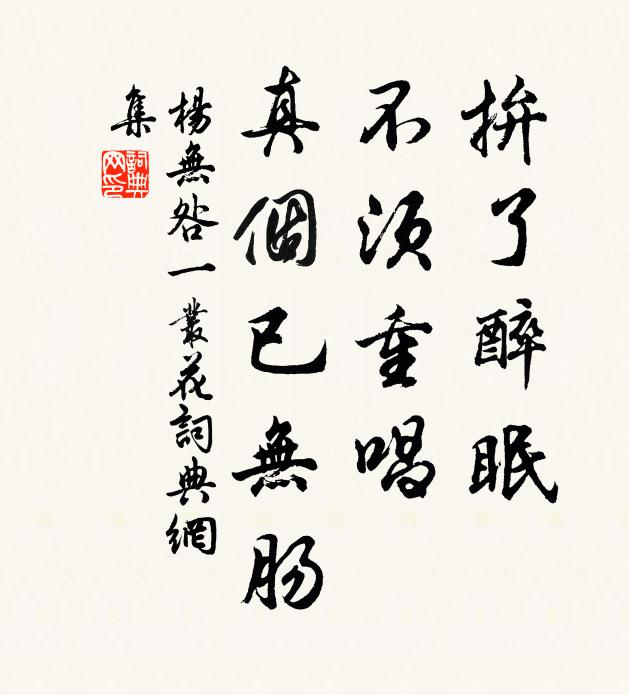 拚了醉眠
不須重唱
真個已無腸
楊無咎一叢花詞典網
集
詞典网印